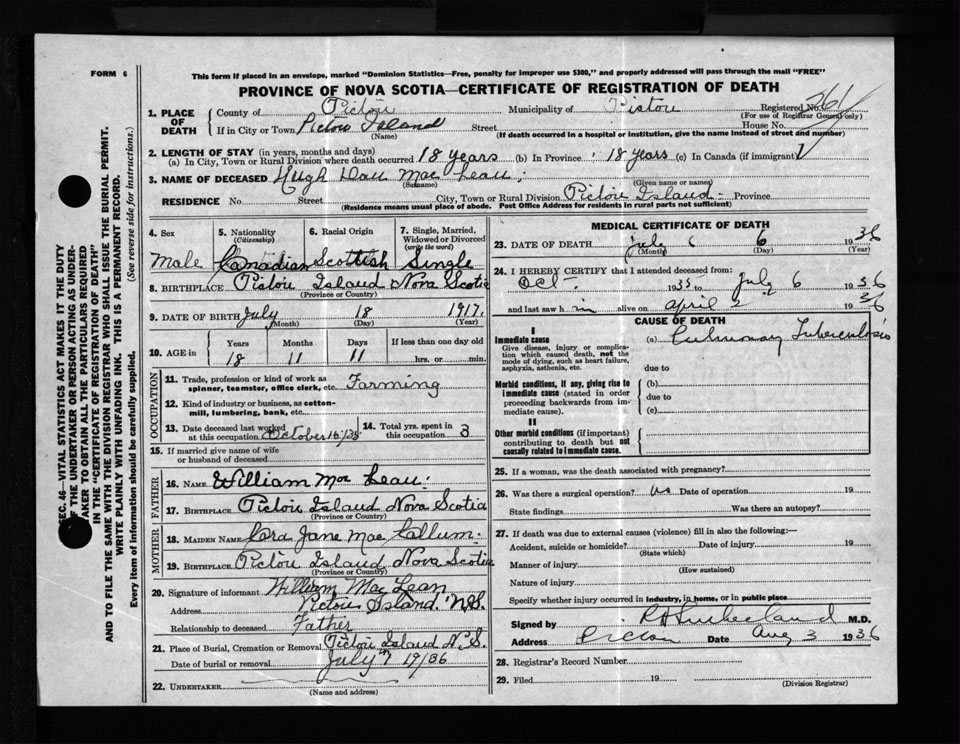 FORM 6
This form if placed in an envelope, marked "Dominion Statistics—Free, penalty for improper use $300," and properly addressed will pass through the mail "FREE"
PROVINCE OF NOVA SCOTIA—CERTIFICATE OF REGISTRATION OF DEATH
1. PLACE OF DEATH
County of Pictou Municipality of Pictou Registered No. 361
(For use of Registrar General only)
If in City or Town Pictou Island Street House No.
(Name) (If death occurred in a hospital or institution, give the name instead of street and number)
2. LENGTH OF STAY (in years, months and days)
(a) In City, Town or Rural Division where death occurred 18 years (b) In Province 18 years (c) In Canada (if immigrant)
3. NAME OF DECEASED Hugh Dan Mac Lean
(Surname) (Given name or names)
RESIDENCE No. Street City, Town or Rural Division Pictou Island Province
(Residence means usual place of abode. Post Office Address for residents in rural parts not sufficient)
4. Sex
Male
5. Nationality
(Citizenship)
Canadian
6. Racial Origin
Scottish
7. Single, Married, Widowed or Divorced
(write the word)
Single
8. BIRTHPLACE Pictou Island Nova Scotia
(Province or Country)
9. DATE OF BIRTH July 18 1917.
(Month) (Day) (Year)
10. AGE in Years Months Days If less than one day old
18 11 11 hrs. or min.
OCCUPATION
11. Trade, profession or kind of work as spinner, teamster, office clerk, etc. Farming
12. Kind of industry or business, as cotton-mill, lumbering, bank, etc.
13. Date deceased last worked at this occupation October 16/35
14. Total yrs. spent in this occupation 3
15. If married give name of wife or husband of deceased
FATHER
16. NAME William Mac Lean
17. BIRTHPLACE Pictou Island Nova Scotia
(Province or Country)
MOTHER
18. MAIDEN NAME Jane Mac Callum
19. BIRTHPLACE Pictou Island Nova Scotia
(Province or Country)
20. Signature of informant William Mac Lean
Address Pictou Island. N.S.
Relationship to deceased Father
21. Place of Burial, Cremation or Removal Pictou Island N.S.
Date of burial or removal July 7 19/36
22. UNDERTAKER
(Name and address)
MEDICAL CERTIFICATE OF DEATH
23. DATE OF DEATH July 6 6 1936
(Month) (Day) (Year)
24. I HEREBY CERTIFY that I attended deceased from:
Oct- 1935 to July 6 1936
and last saw h im alive on April 2 1936
CAUSE OF DEATH
I
Immediate cause
Give disease, injury or complication which caused death, not the mode of dying, such as heart failure, asphyxia, asthenia, etc.
(a) Pulmonary Tuberculosis
due to
Morbid conditions, if any, giving rise to immediate cause (stated in order proceeding backwards from immediate cause).
(b)
due to
(c)
II
Other morbid conditions (if important) contributing to death but not causally related to immediate cause.
25. If a woman, was the death associated with pregnancy?
26. Was there a surgical operation? no Date of operation 19
State findings Was there an autopsy?
27. If death was due to external causes (violence) fill in also the following:—
Accident, suicide or homicide? Date of injury 19
(State which)
Manner of injury
(How sustained)
Nature of injury
Specify whether injury occurred in industry, in home, or in public place
Signed by M.D.
Address Pictou Date Aug 3 1936
28. Registrar's Record Number
29. Filed 19
(Division Registrar)
SEC. 46—VITAL STATISTICS ACT MAKES IT THE DUTY
OF THE UNDERTAKER OR PERSON ACTING AS UNDERTAKER TO OBTAIN ALL THE PARTICULARS REQUIRED
IN THE "CERTIFICATE OF REGISTRATION OF DEATH"
AND TO FILE THE SAME WITH THE DIVISION REGISTRAR WHO SHALL ISSUE THE BURIAL PERMIT.
WRITE PLAINLY WITH UNFADING INK. THIS IS A PERMANENT RECORD.
Every item of information should be carefully supplied. (See reverse side for instructions.)